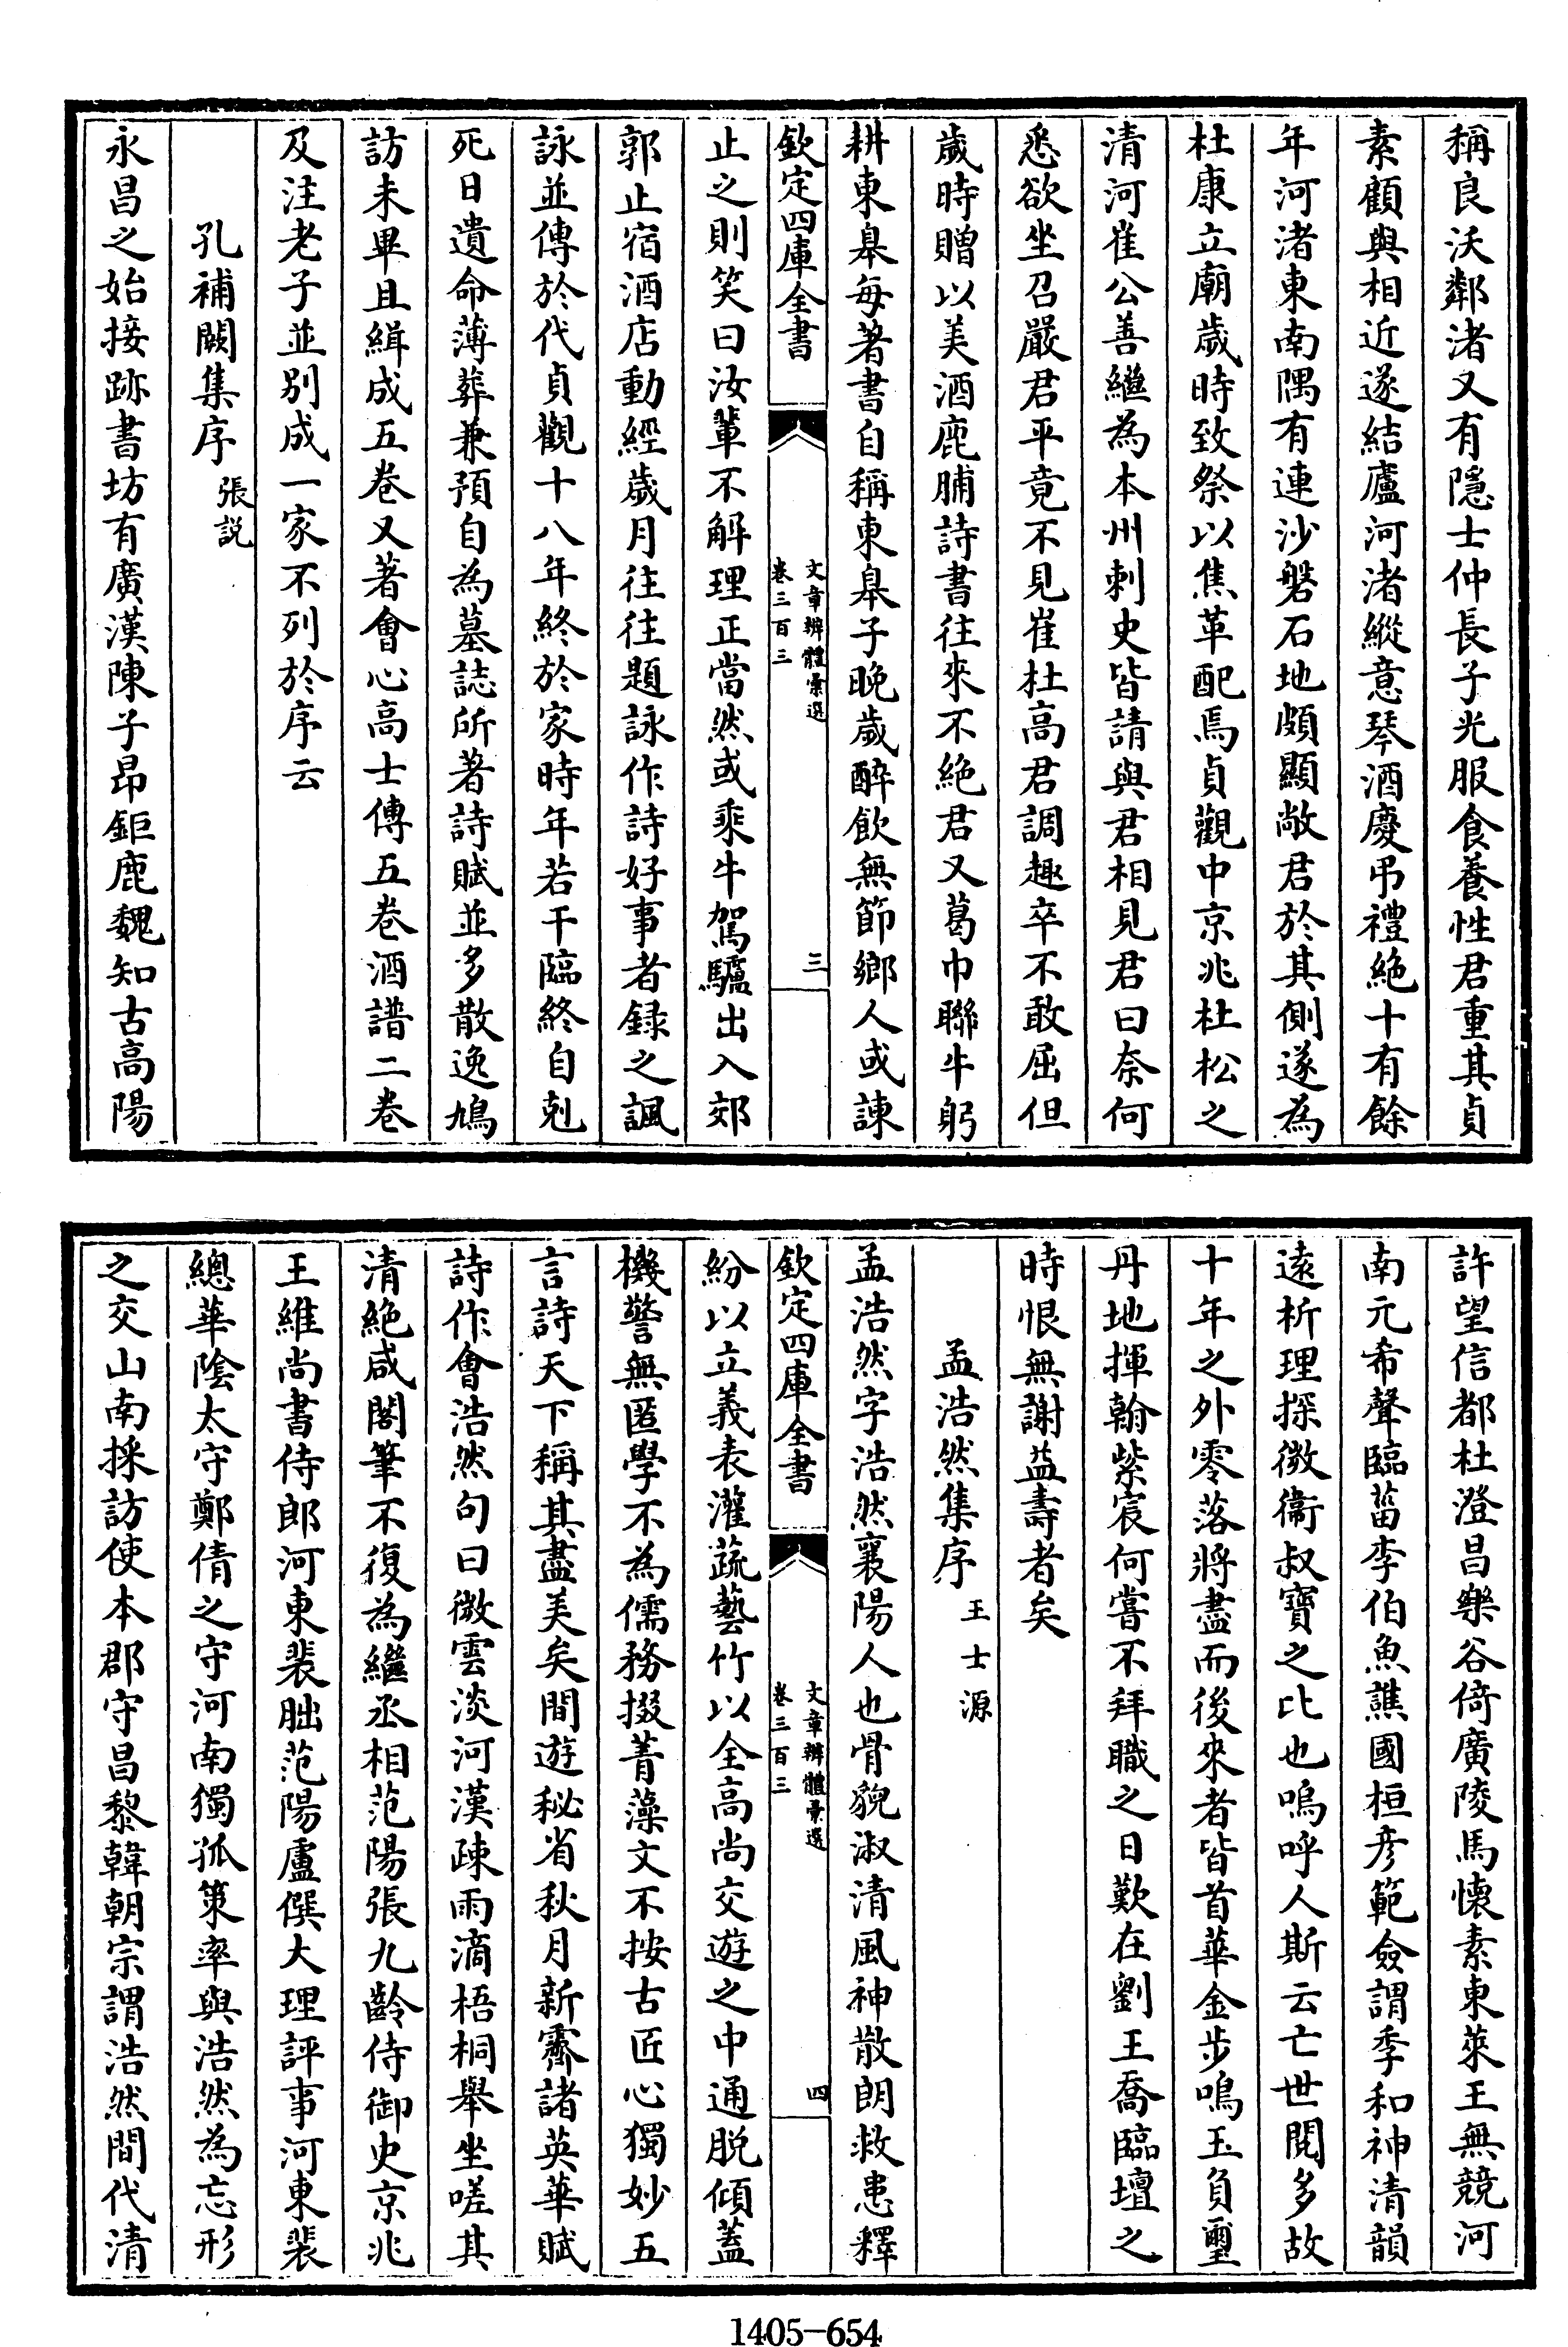 稱良沃鄰渚又有隱士仲長子光服食養性君重其貞
素顧與相近遂結廬河渚縱意琴酒慶弔禮絶十有餘
年河渚東南隅有連沙磐石地頗顯敞君於其側遂為
杜康立廟歲時致祭以焦革配焉貞觀中京兆杜松之
清河崔公善繼為本州刺史皆請與君相見君曰奈何
悉欲坐召嚴君平竟不見崔杜高君調趣卒不敢屈但
歲時贈以美酒鹿脯詩書往來不絶君又葛巾聯牛躬
耕東臯每著書自稱東臯子晚歲醉飲無節鄉人或諫
欽定四庫全書
文章辨體彙選
卷三百三
三
止之則笑曰汝輩不解理正當然或乘牛駕驢出入郊
郭止宿酒店動經歲月往往題詠作詩好事者録之諷
詠並傳於代貞觀十八年終於家時年若干臨終自剋
死日遺命薄葬兼預自為墓誌所著詩賦並多散逸鳩
訪未畢且緝成五卷又著會心高士傳五卷酒譜二卷
及注老子並别成一家不列於序云
孔補闕集序 張説
永昌之始接跡書坊有廣漢陳子昂鉅鹿魏知古高陽
許望信都杜澄昌樂谷倚廣陵馬懷素東萊王無競河
南元希聲臨菑李伯魚譙國桓彦範僉謂季和神清韻
遠析理探微衞叔寶之比也嗚呼人斯云亡世閲多故
十年之外零落將盡而後來者皆首華金步鳴玉負璽
丹地揮翰紫宸何嘗不拜職之日歎在劉王喬臨壇之
時恨無謝益壽者矣
孟浩然集序 王士源
孟浩然字浩然襄陽人也骨貌淑清風神散朗救患釋
欽定四庫全書
文章辨體彙選
卷三百三
四
紛以立義表灌蔬藝竹以全高尚交遊之中通脱傾蓋
機警無匿學不為儒務掇菁藻文不按古匠心獨妙五
言詩天下稱其盡美矣間遊秘省秋月新霽諸英華賦
詩作會浩然句曰微雲淡河漢疎雨滴梧桐舉坐嗟其
清絶咸閣筆不復為繼丞相范陽張九齡侍御史京兆
王維尚書侍郎河東裴朏范陽盧僎大理評事河東裴
總華陰太守鄭倩之守河南獨孤策率與浩然為忘形
之交山南採訪使本郡守昌黎韓朝宗謂浩然間代清
1405-654